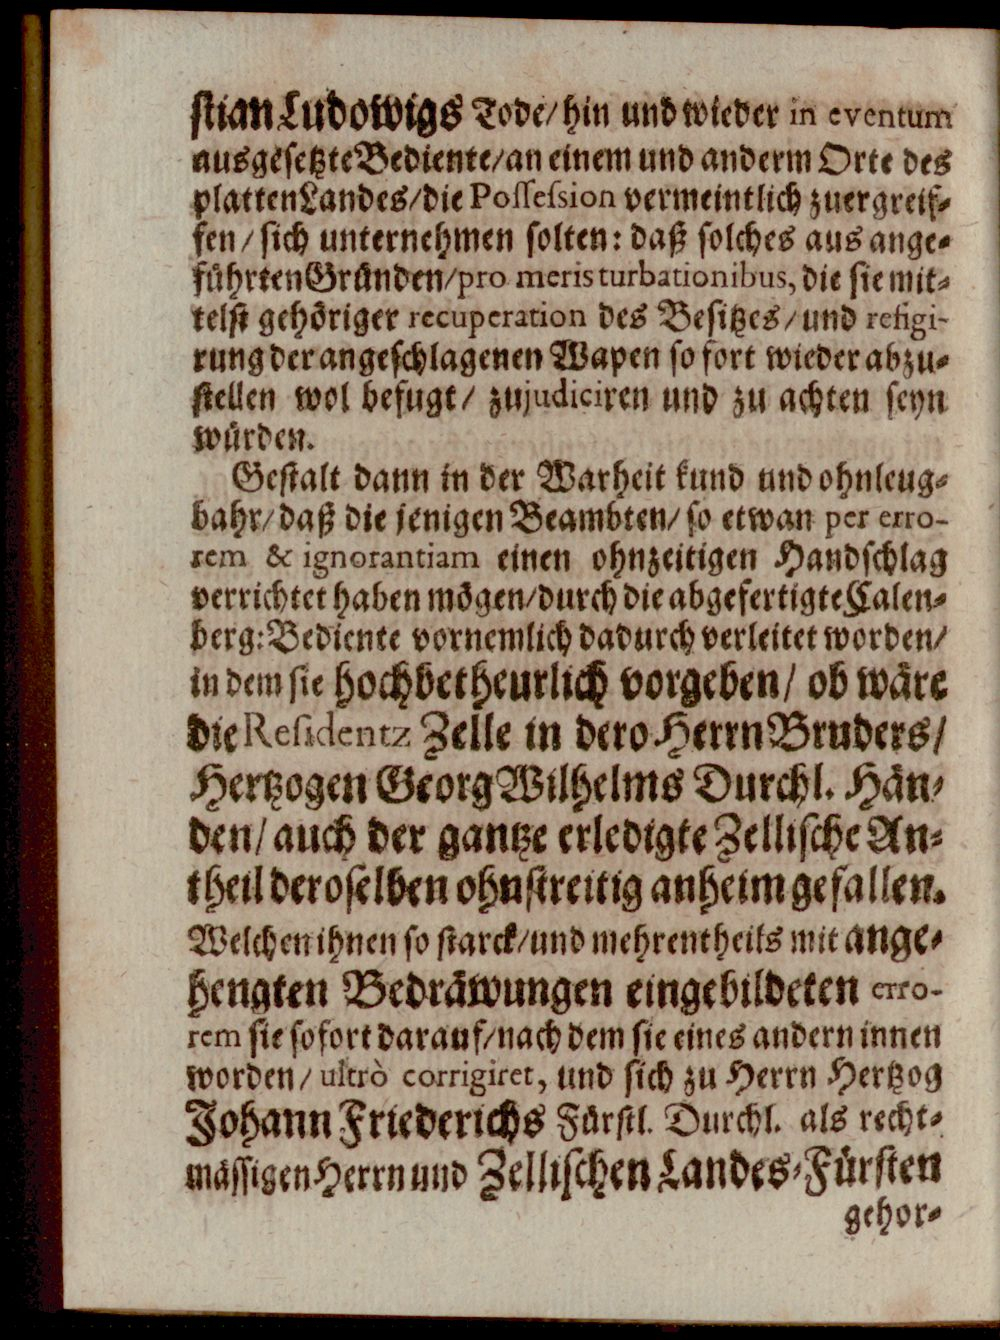 stian Ludowigs Tode/ hin und wieder in eventum
ausgesetzte Bediente/ an einem und anderm Orte des
platten Landes/ die Possession vermeintlich zuergreif-
fen/ sich unternehmen solten: daß solches aus ange-
führten Gründen/ pro meris turbationibus, die sie mit-
telst gehöriger recuperation des Besitzes/ und refigi-
rung der angeschlagenen Wapen so fort wieder abzu-
stellen wol befugt/ zujudiciren und zu achten seyn
würden.
Gestalt dann in der Warheit kund und ohnleug-
bahr/ daß die jenigen Beambten/ so etwan per erro-
rem & ignorantiam einen ohnzeitigen Handschlag
verrichtet haben mögen/ durch die abgefertigte Calen-
berg: Bediente vornemlich dadurch verleitet worden/
in dem sie hochbetheurlich vorgeben/ ob wäre
die Residentz Zelle in dero Herrn Bruders/
Hertzogen Georg Wilhelms Durchl. Hän-
den/ auch der gantze erledigte Zellische An-
theil deroselben ohnstreitig anheim gefallen.
Welchen ihnen so starck/ und mehrentheils mit ange-
hengten Bedräwungen eingebildeten erro-
rem sie sofort darauf/ nach dem sie eines andern innen
worden/ ultrò corrigiret, und sich zu Herrn Hertzog
Johann Friederichs Fürstl. Durchl. als recht-
mässigen Herrn und Zellischen Landes-Fürsten
gehor-